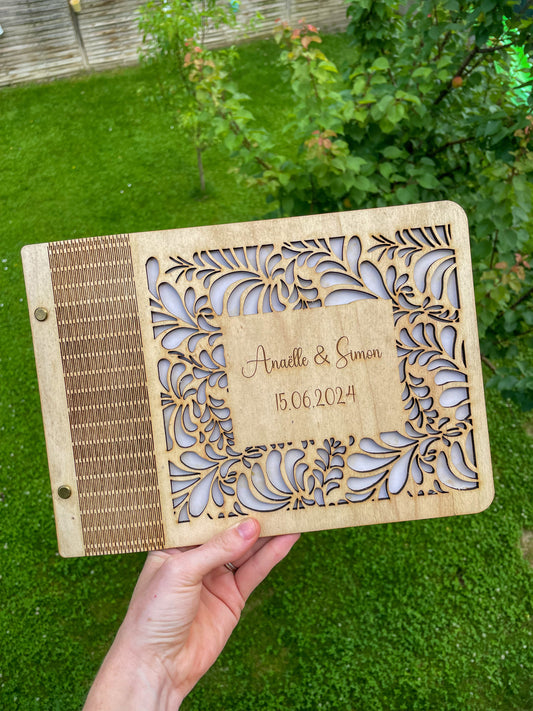 Anaëlle & Simon
15.06.2024